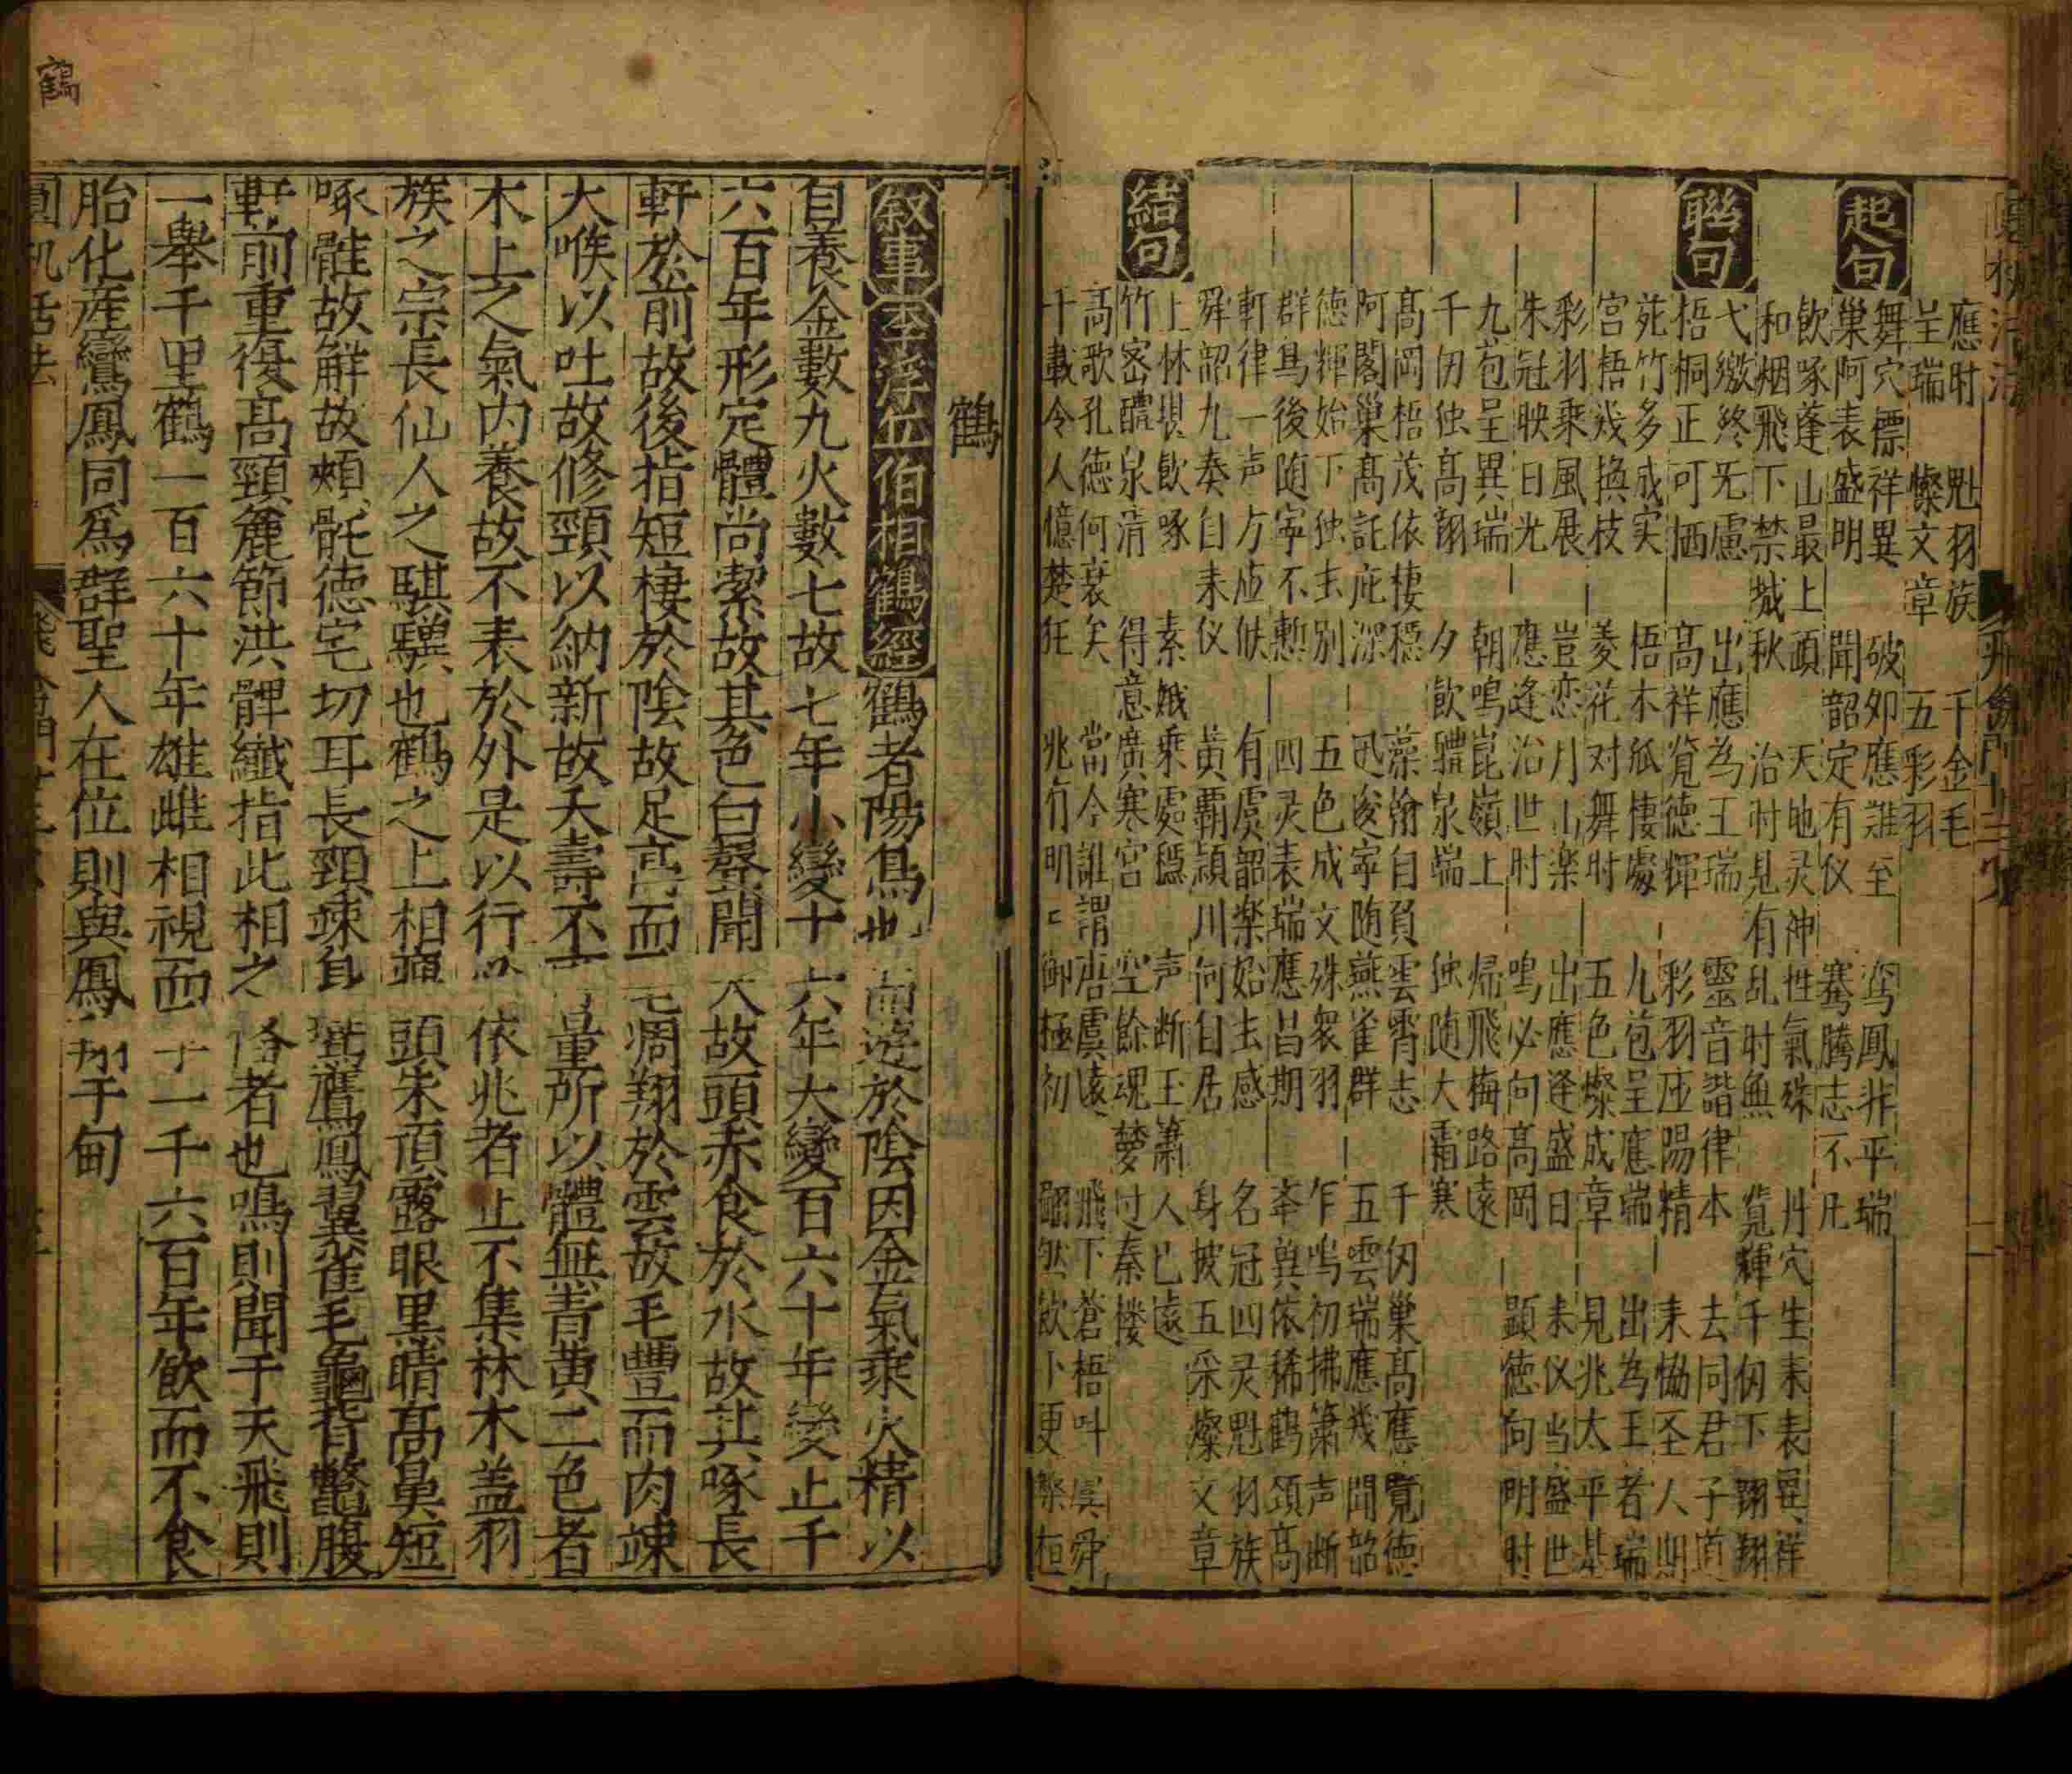 應时　魁羽族　千金毛
呈瑞　燦文章　五彩羽
起句
舞穴標祥異　破夘應難至　鸾鳳非平瑞
巢阿表盛明　聞韶定有仪　騫騰志不凡
飲啄蓬山最上頭　天地灵神性氣殊　丹穴生来表異祥
和烟飛下禁城秋　治时見有乱时無　覧輝千仭下翱翔
聮句
弋繳終无慮　出應為王瑞　靈音諧律本　去同君子道
梧桐正可栖　高祥覧徳輝　彩羽应陽精　来恊圣人期
苑竹多成实　梧木祇棲處　九苞呈應端　出為王者瑞
宫梧幾换枝　菱花对舞时　五色燦成章　見兆太平基
彩羽乘風展　豈恋月山楽　出應逢盛日　来仪当盛世
朱冠映日光　應逢治世时　鳴必向高岡　顕徳向明时
九苞呈異瑞　朝鳴崑嶺上　帰飛梅路遠
千仞独高翔　夕飲醴泉端　独随大霜寒
高岡梧茂依棲穏　藻翰自負雲霄志　千仞巢高應覽徳
阿閣巢高託庇深　迅　寧随燕雀群　五雲瑞應幾聞韶
徳輝始下独去别　五色成文殊衆羽　乍鳴初拂簫声断
群鳥後随寧不慙　四灵表瑞應昌期　依稀鶴頚高
軒律一声方应候　有虞韶楽始去感　名冠四灵魁羽族
舜韶九奏自来仪　黄覇頴川何自居　身披五采燦文章
結句
上林　飲啄　素娥乘處穏　声断玉簫人已遠
竹密醴泉清　得意廣寒宮　空餘魂夢过秦楼
高歌孔徳何衰矣　當今誰謂唐虞遠　飛下蒼梧叫虞舜
千載令人憶楚狂　明々御極初　翩然飲卜更
鶴
叙事　李浮丘伯相鶴經　鶴者陽鳥也而遊於陰因金氣乘火精以
自養金數九火數七故七年小變十六年大變百六十年變止千
六百年形定體尚潔故其色白聲聞天故頭赤食於水故其啄長
軒於前故後指短棲於陰故足高而　凋翔於雲故毛豐而肉疎
大喉以吐故修頸以納新故夭壽不可量所以體無青黄二色者
木土之氣内養故不表於外是以行必依兆者止不集林木盖羽
族之宗長仙人之騏驥也鶴之上相瘦頭朱頂露眼黒睛高鼻短
啄䯼故解故頰䯊徳宅切耳長頸竦身鴻鷹鳳翼雀毛龜背鱉腹
軒前重後高頸麄節洪髀纎指此相之俻者也鳴則聞于天飛則
一舉千里鶴一百六十年雄雌相視而孕一千六百年飲而不食
胎化産鸞鳳同爲群聖人在位則與鳳翔于甸
鶴